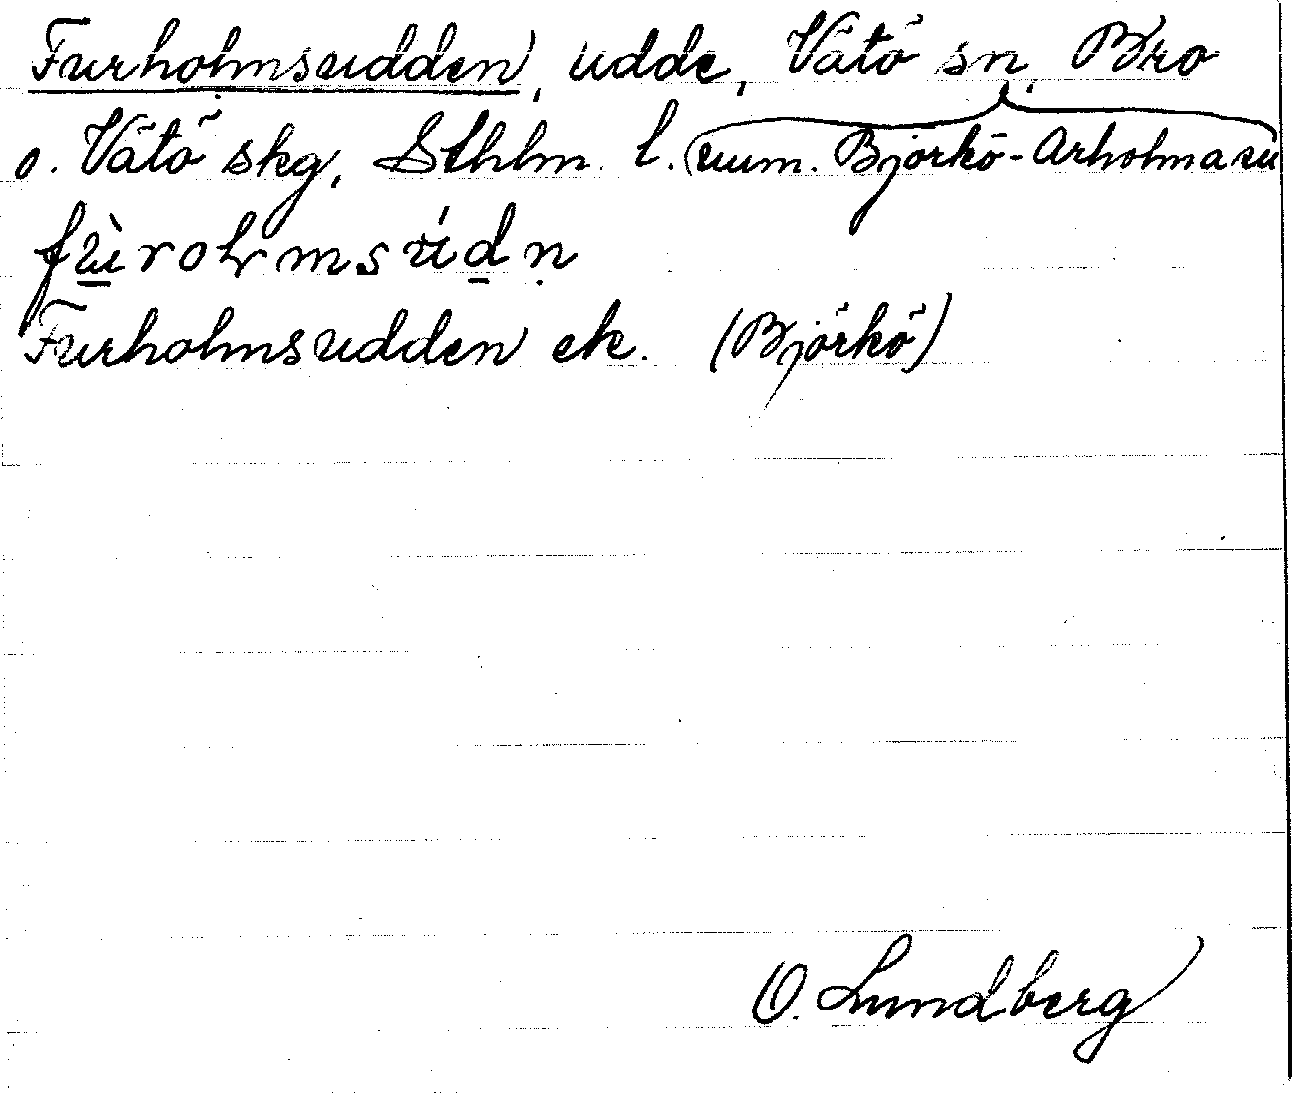 Furholmsudden, udde, Vätö sn, Bro
o. Vätö skg, Sthlm. l. (num. Björkö-Arholma sn
fùroɫmsúdn̥
Furholmsudden ek. (Björkö)
O. Lundberg